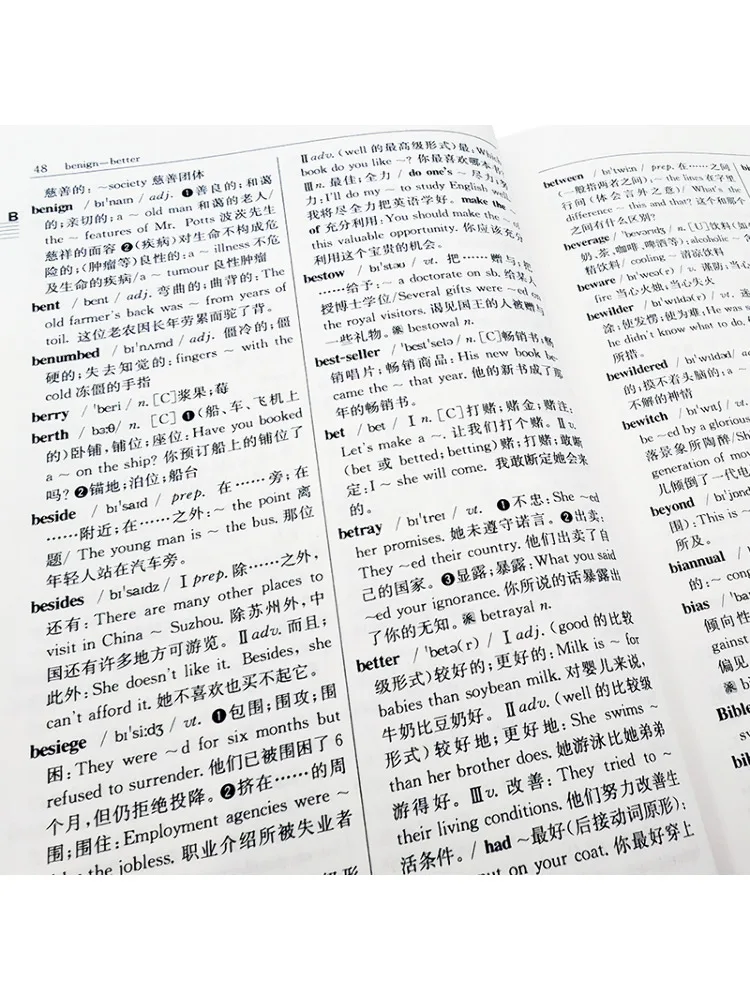 48 benign—better
慈善的: ~society 慈善团体
B
benign /bɪˈnaɪn/ adj. ❶善良的; 和蔼
的; 亲切的: a ~ old man 和蔼的老人/
the ~ features of Mr. Potts 波茨先生
慈祥的面容 ❷(疾病)对生命不构成危
险的; (肿瘤等)良性的: a ~ illness 不危
及生命的疾病/a ~ tumour 良性肿瘤
bent /bent/ adj. 弯曲的; 曲背的: The
old farmer's back was ~ from years of
toil. 这位老农因长年劳累而驼了背。
benumbed /bɪˈnʌmd/ adj. 僵冷的; 僵
硬的; 失去知觉的: fingers ~ with the
cold 冻僵的手指
berry /ˈberi/ n. [C]浆果; 莓
berth /bɜːθ/ n. [C] ❶(船、车、飞机上
的)卧铺, 铺位; 座位: Have you booked
a ~ on the ship? 你预订船上的铺位了
吗? ❷锚地; 泊位; 船台
beside /bɪˈsaɪd/ prep. 在……旁; 在
……附近; 在……之外: ~ the point 离
题/ The young man is ~ the bus. 那位
年轻人站在汽车旁。
besides /bɪˈsaɪdz/ Ⅰ prep. 除……之外,
还有: There are many other places to
visit in China ~ Suzhou. 除苏州外, 中
国还有许多地方可游览。 Ⅱ adv. 而且;
此外: She doesn't like it. Besides, she
can't afford it. 她不喜欢也买不起它。
besiege /bɪˈsiːdʒ/ vt. ❶包围; 围攻; 围
困: They were ~d for six months but
refused to surrender. 他们已被围困了 6
个月, 但仍拒绝投降。 ❷挤在……的周
围; 围住: Employment agencies were ~
the jobless. 职业介绍所被失业者
Ⅱ adv. (well 的最高级形式)最: Which
book do you like ~? 你最喜欢哪本书?
Ⅲ n. 最佳; 全力 / do one's ~ 尽力; 努
力: I'll do my ~ to study English well.
我将尽全力把英语学好。 make the ~
of 充分利用: You should make the ~ of
this valuable opportunity. 你应该充分
利用这个宝贵的机会。
bestow /bɪˈstəʊ/ vt. 把……赠与; 把
……给予: ~ a doctorate on sb. 给某人
授博士学位/Several gifts were ~ed on
the royal visitors. 谒见国王的人被赠与
一些礼物。 bestowal n.
best-seller /ˈbestˈselə/ n. [C]畅销书; 畅
销唱片; 畅销商品: His new book be-
came the ~ that year. 他的新书成了那
年的畅销书。
bet /bet/ Ⅰ n. [C]打赌; 赌金; 赌注:
Let's make a ~. 让我们打个赌。 Ⅱ v.
(bet 或 betted; betting)赌; 打赌; 敢断
定: I ~ she will come. 我敢断定她会来
的。
betray /bɪˈtreɪ/ vt. ❶不忠: She ~ed
her promises. 她未遵守诺言。 ❷出卖:
They ~ed their country. 他们出卖了自
己的国家。 ❸显露; 暴露: What you said
~ed your ignorance. 你所说的话暴露出
了你的无知。 betrayal n.
better /ˈbetə(r)/ Ⅰ adj. (good 的比较
级形式)较好的; 更好的: Milk is ~ for
babies than soybean milk. 对婴儿来说,
牛奶比豆奶好。 Ⅱ adv. (well 的比较级
形式)较好地; 更好地: She swims ~
than her brother does. 她游泳比她弟弟
游得好。 Ⅲ v. 改善: They tried to ~
their living conditions. 他们努力改善生
活条件。 / had ~ 最好(后接动词原形):
on your coat. 你最好穿上
between /bɪˈtwiːn/ prep. 在……之间
(一般指两者之间)/~ the lines 在字里
行间(体会言外之意)/ What's the
difference ~ this and that? 这个和那个
之间有什么区别?
beverage /ˈbevərɪdʒ/ n. [U]饮料(如
奶、茶、咖啡、啤酒等): alcoholic ~
精饮料/ cooling ~ 清凉饮料
beware /bɪˈweə(r)/ v. 谨防; 当心
fire 当心火烛; 当心失火
bewilder /bɪˈwɪldə(r)/ vt.
涂; 使发愣; 使为难: He was
he didn't know what to do.
所措。
bewildered /bɪˈwɪldəd/
的; 摸不着头脑的: a ~
不解的神情
bewitch /bɪˈwɪtʃ/ vt.
be ~ed by a glorious
落景象所陶醉/
generation of
儿倾倒了一代
beyond
This is ~
所及。
biannual
的: ~
bias
倾向性
偏见